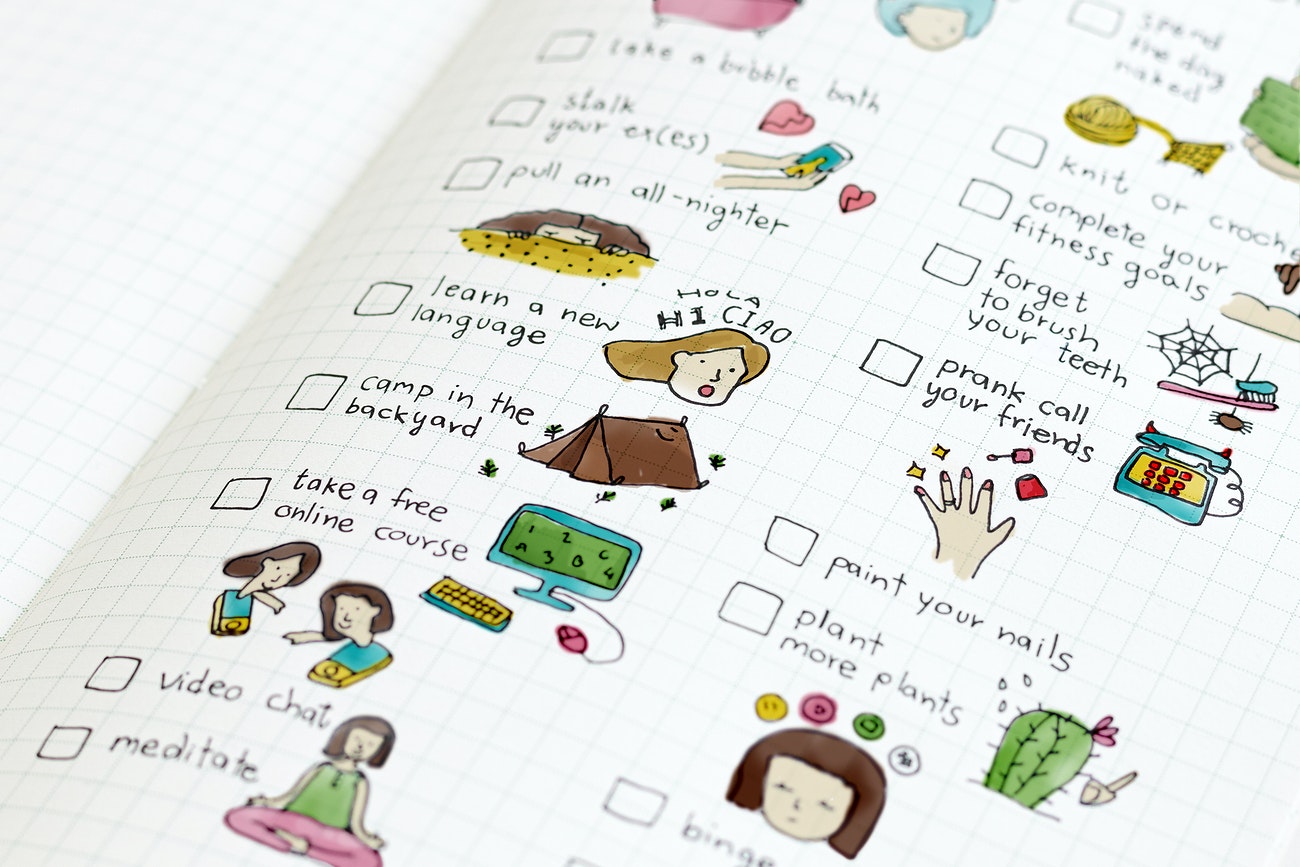 take a bubble bath
stalk
your ex(es)
pull an all-nighter
learn a new
language
HOLA
HI CIAO
camp in the
backyard
take a free
online course
1 2 C
A 3 B 4
video chat
meditate
spend
the day
naked
knit or croche
complete your
fitness goals
forget
to brush
your teeth
prank call
your friends
paint your nails
plant
more plants
binge